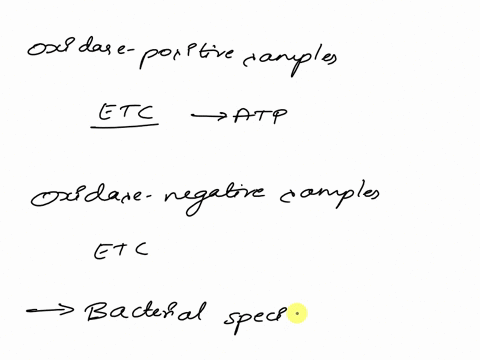 oxidase-positive samples
ETC → ATP
oxidase-negative samples
ETC
→ Bacterial speci